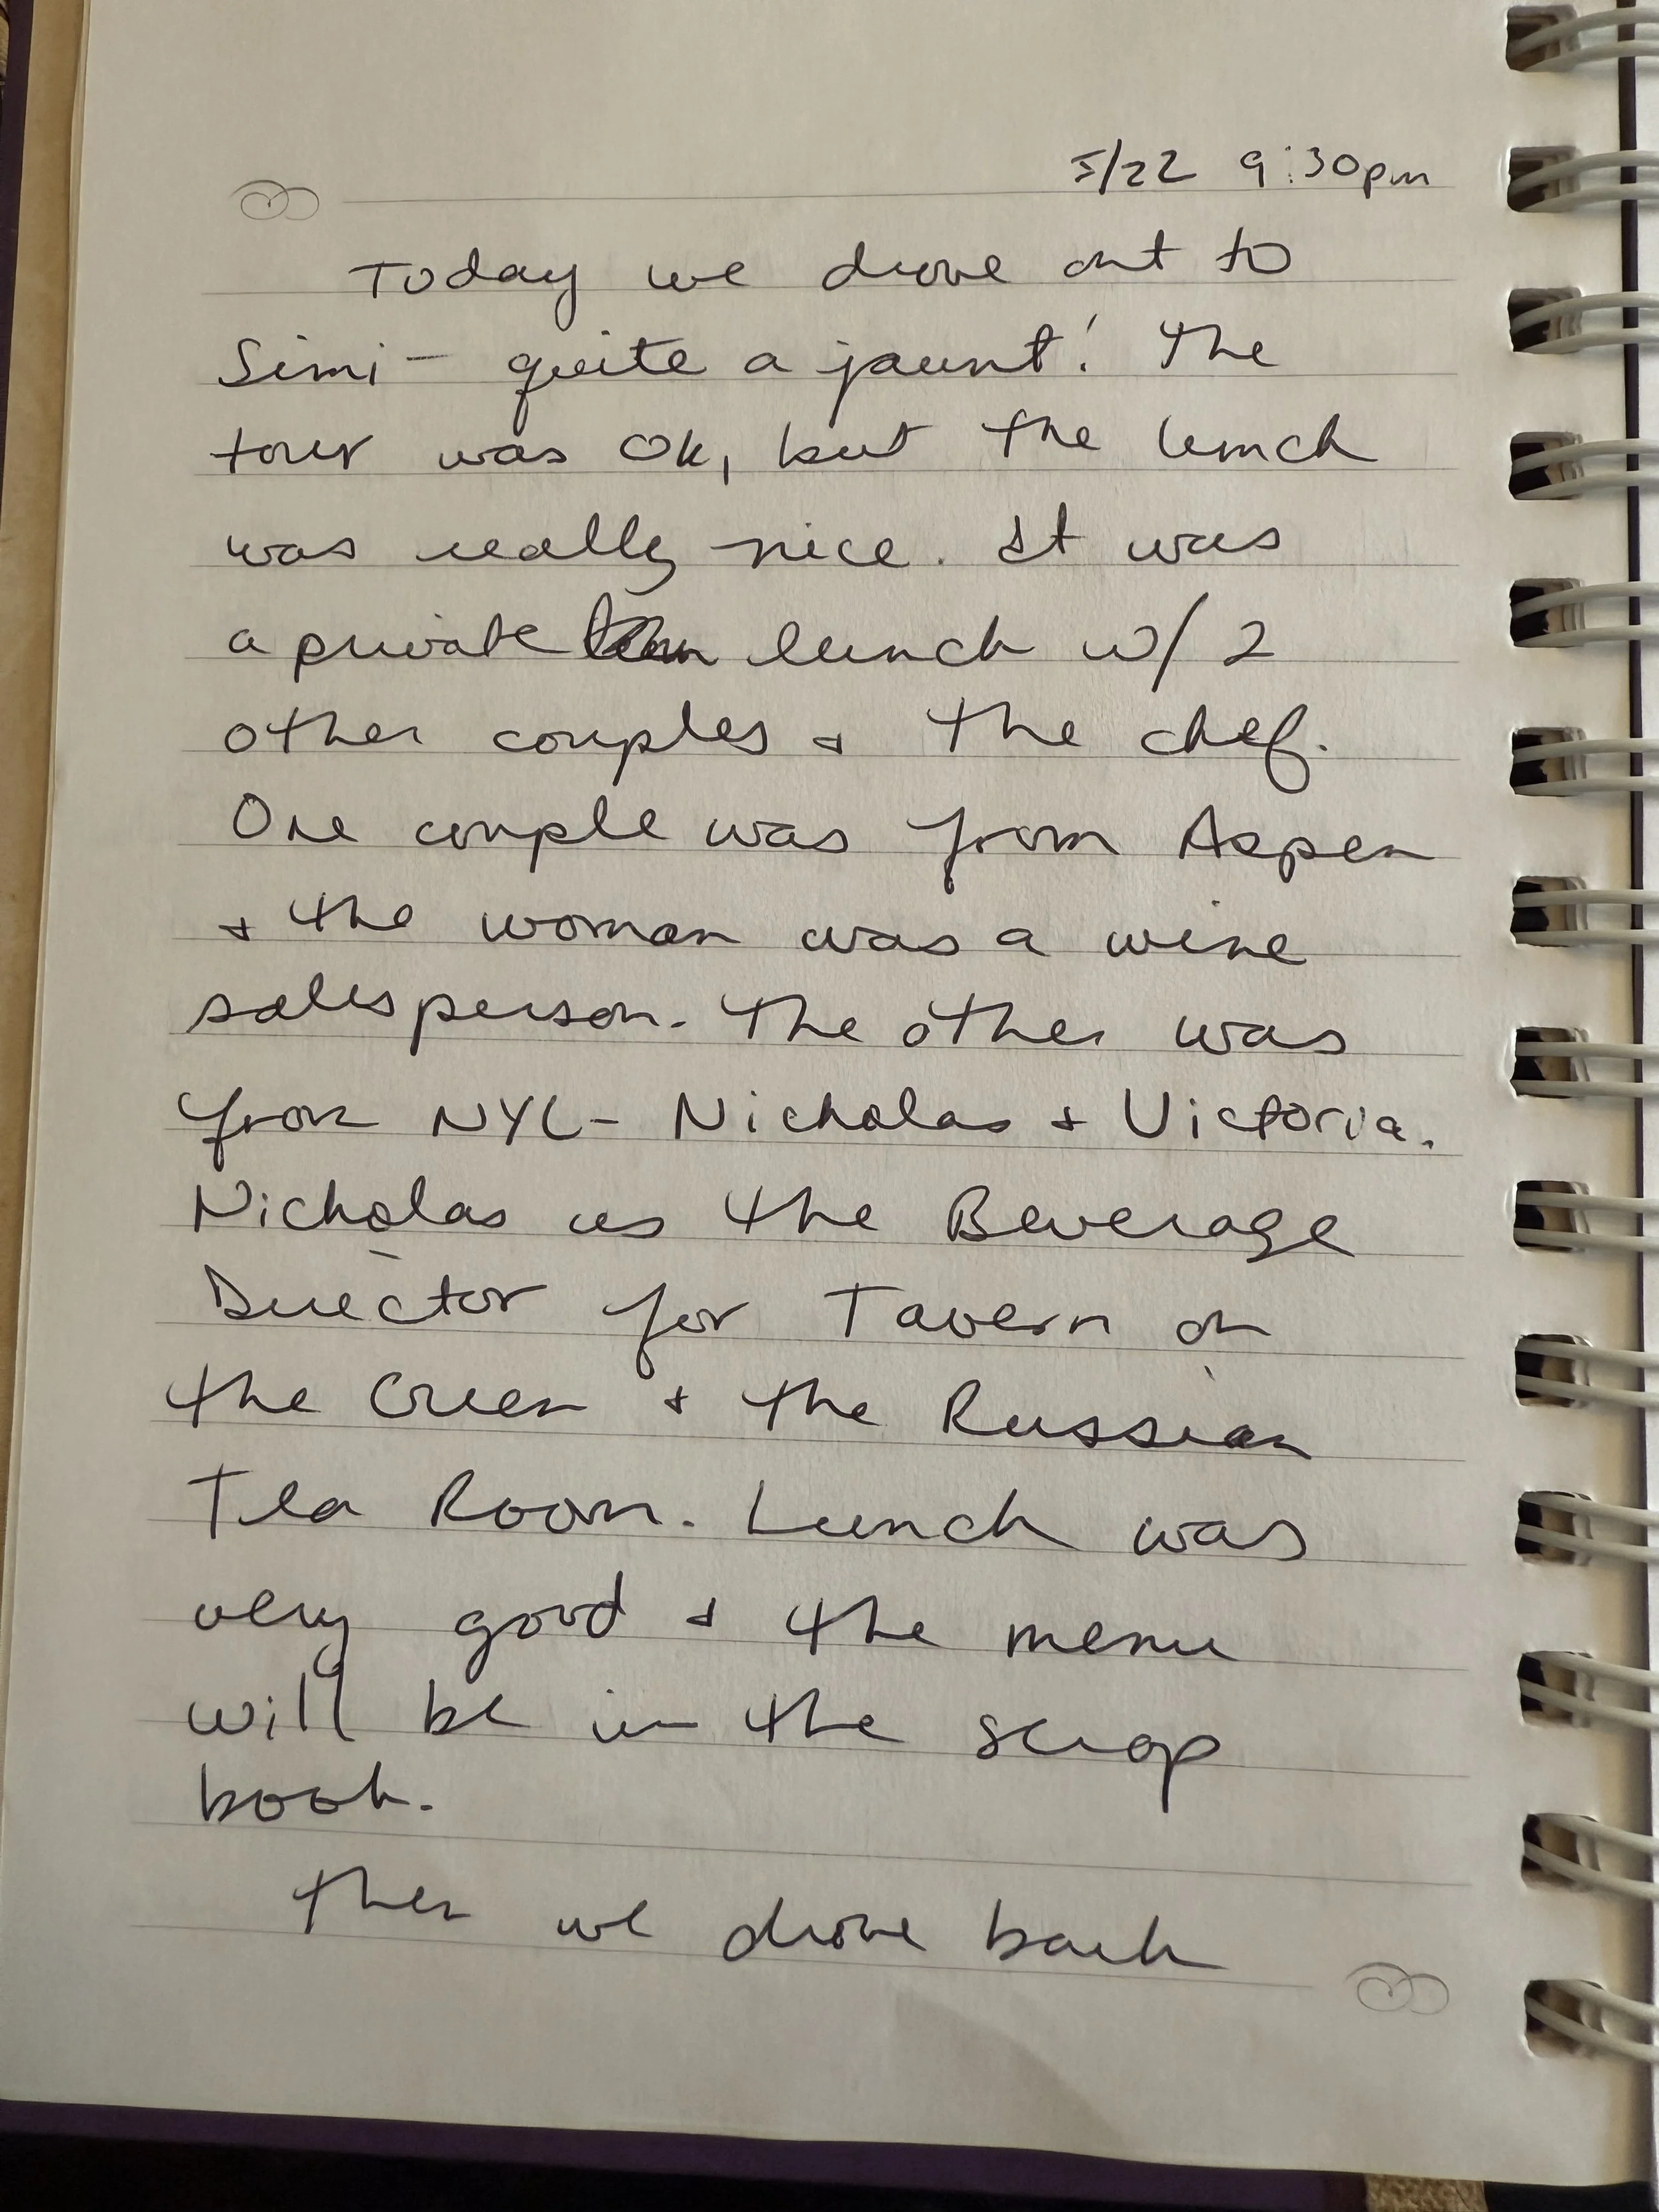 5/22 9:30pm
Today we drove out to
Simi - quite a jaunt! The
tour was ok, but the lunch
was really nice. It was
a private lunch w/ 2
other couples & the chef.
One couple was from Aspen
& the woman was a wine
salesperson. The other was
from NYC - Nicholas & Victoria.
Nicholas is the Beverage
Director for Tavern on
the Green & the Russian
Tea Room. Lunch was
very good & the menu
will be in the scrap
book.
Then we drove back